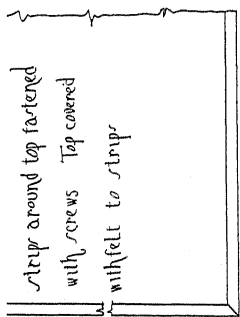 strips around top fastened
with screws Top covered
with felt to strips